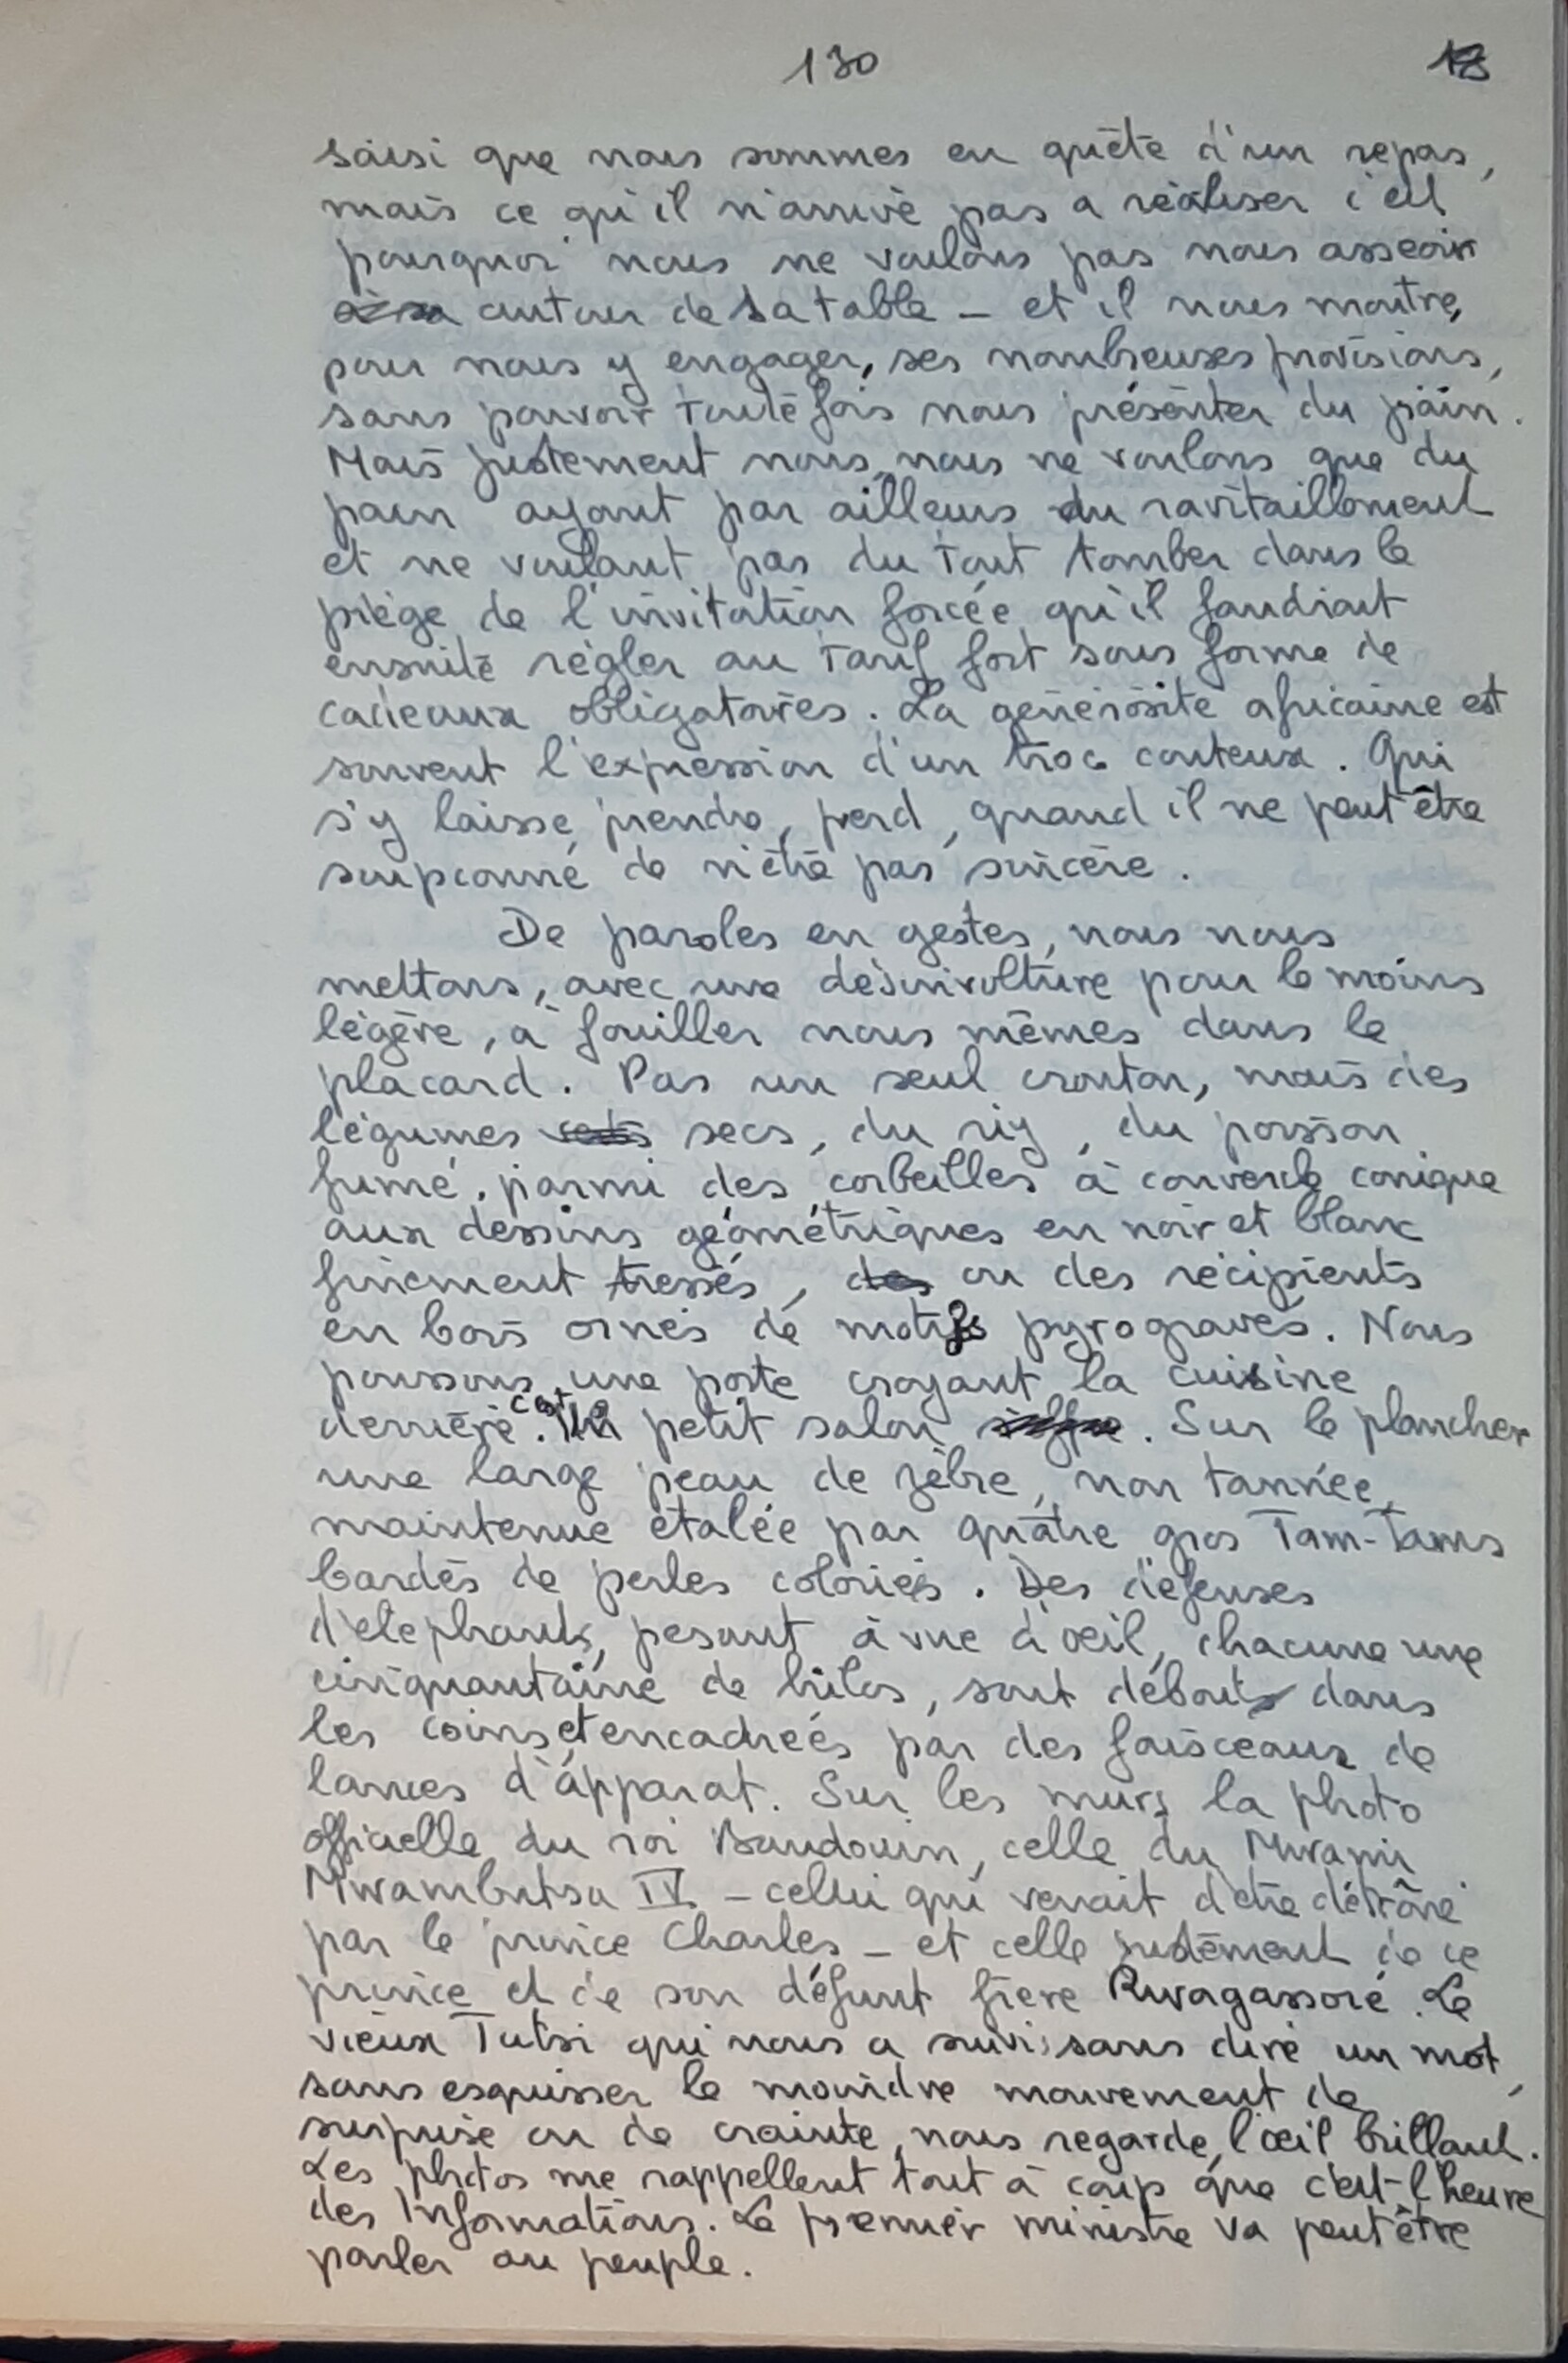 130
saisi que nous sommes en quête d'un repas,
mais ce qu'il n'arrive pas a réaliser c'est
pourquoi nous ne voulons pas nous asseoir
autour de sa table - et il nous montre,
pour nous y engager, ses nombreuses provisions,
sans pouvoir toutefois nous présenter du pain.
Mais justement nous, nous ne voulons que du
pain ayant par ailleurs du ravitaillement
et ne voulant pas du tout tomber dans le
piège de l'invitation forcée qu'il faudrait
ensuite régler au tarif fort sous forme de
cadeaux obligatoires. La générosité africaine est
souvent l'expression d'un troc couteux. Qui
s'y laisse prendre, perd, quand il ne peut être
soupconné de n'être pas sincère.
De paroles en gestes, nous nous
mettons, avec une désinvolture pour le moins
légère, à fouiller nous mêmes dans le
placard. Pas un seul crouton, mais des
légumes secs, du riz, du poisson
fumé, parmi des corbeilles à couvercle conique
aux dessins géométriques en noir et blanc
finement tressés, ou des récipients
en bois ornés de motifs pyrogravés. Nous
poussons une porte croyant la cuisine
derrière. C'est un petit salon. Sur le plancher
une large peau de zèbre, non tannée,
maintenue étalée par quatre gros Tam-Tams
bardés de perles coloriés. Des défenses
d'elephants, pesant à vue d'oeil, chacune une
cinquantaine de kilos, sont débouts dans
les coins et encadreés par des faisceaux de
lances d'apparat. Sur les murs la photo
officielle du roi Baudouin, celle du Mwami
Mwambutsa IV - celui qui venait d'etre détrôné
par le prince Charles - et celle justement de ce
prince et de son défunt frère Rwagassoré. Le
vieux Tutsi qui nous a suivi, sans dire un mot,
sans esquisser le moindre mouvement de
surprise ou de crainte, nous regarde, l'œil brillant.
Les photos me rappellent tout à coup que c'est l'heure
des Informations. Le premier ministre va peut être
parler au peuple.